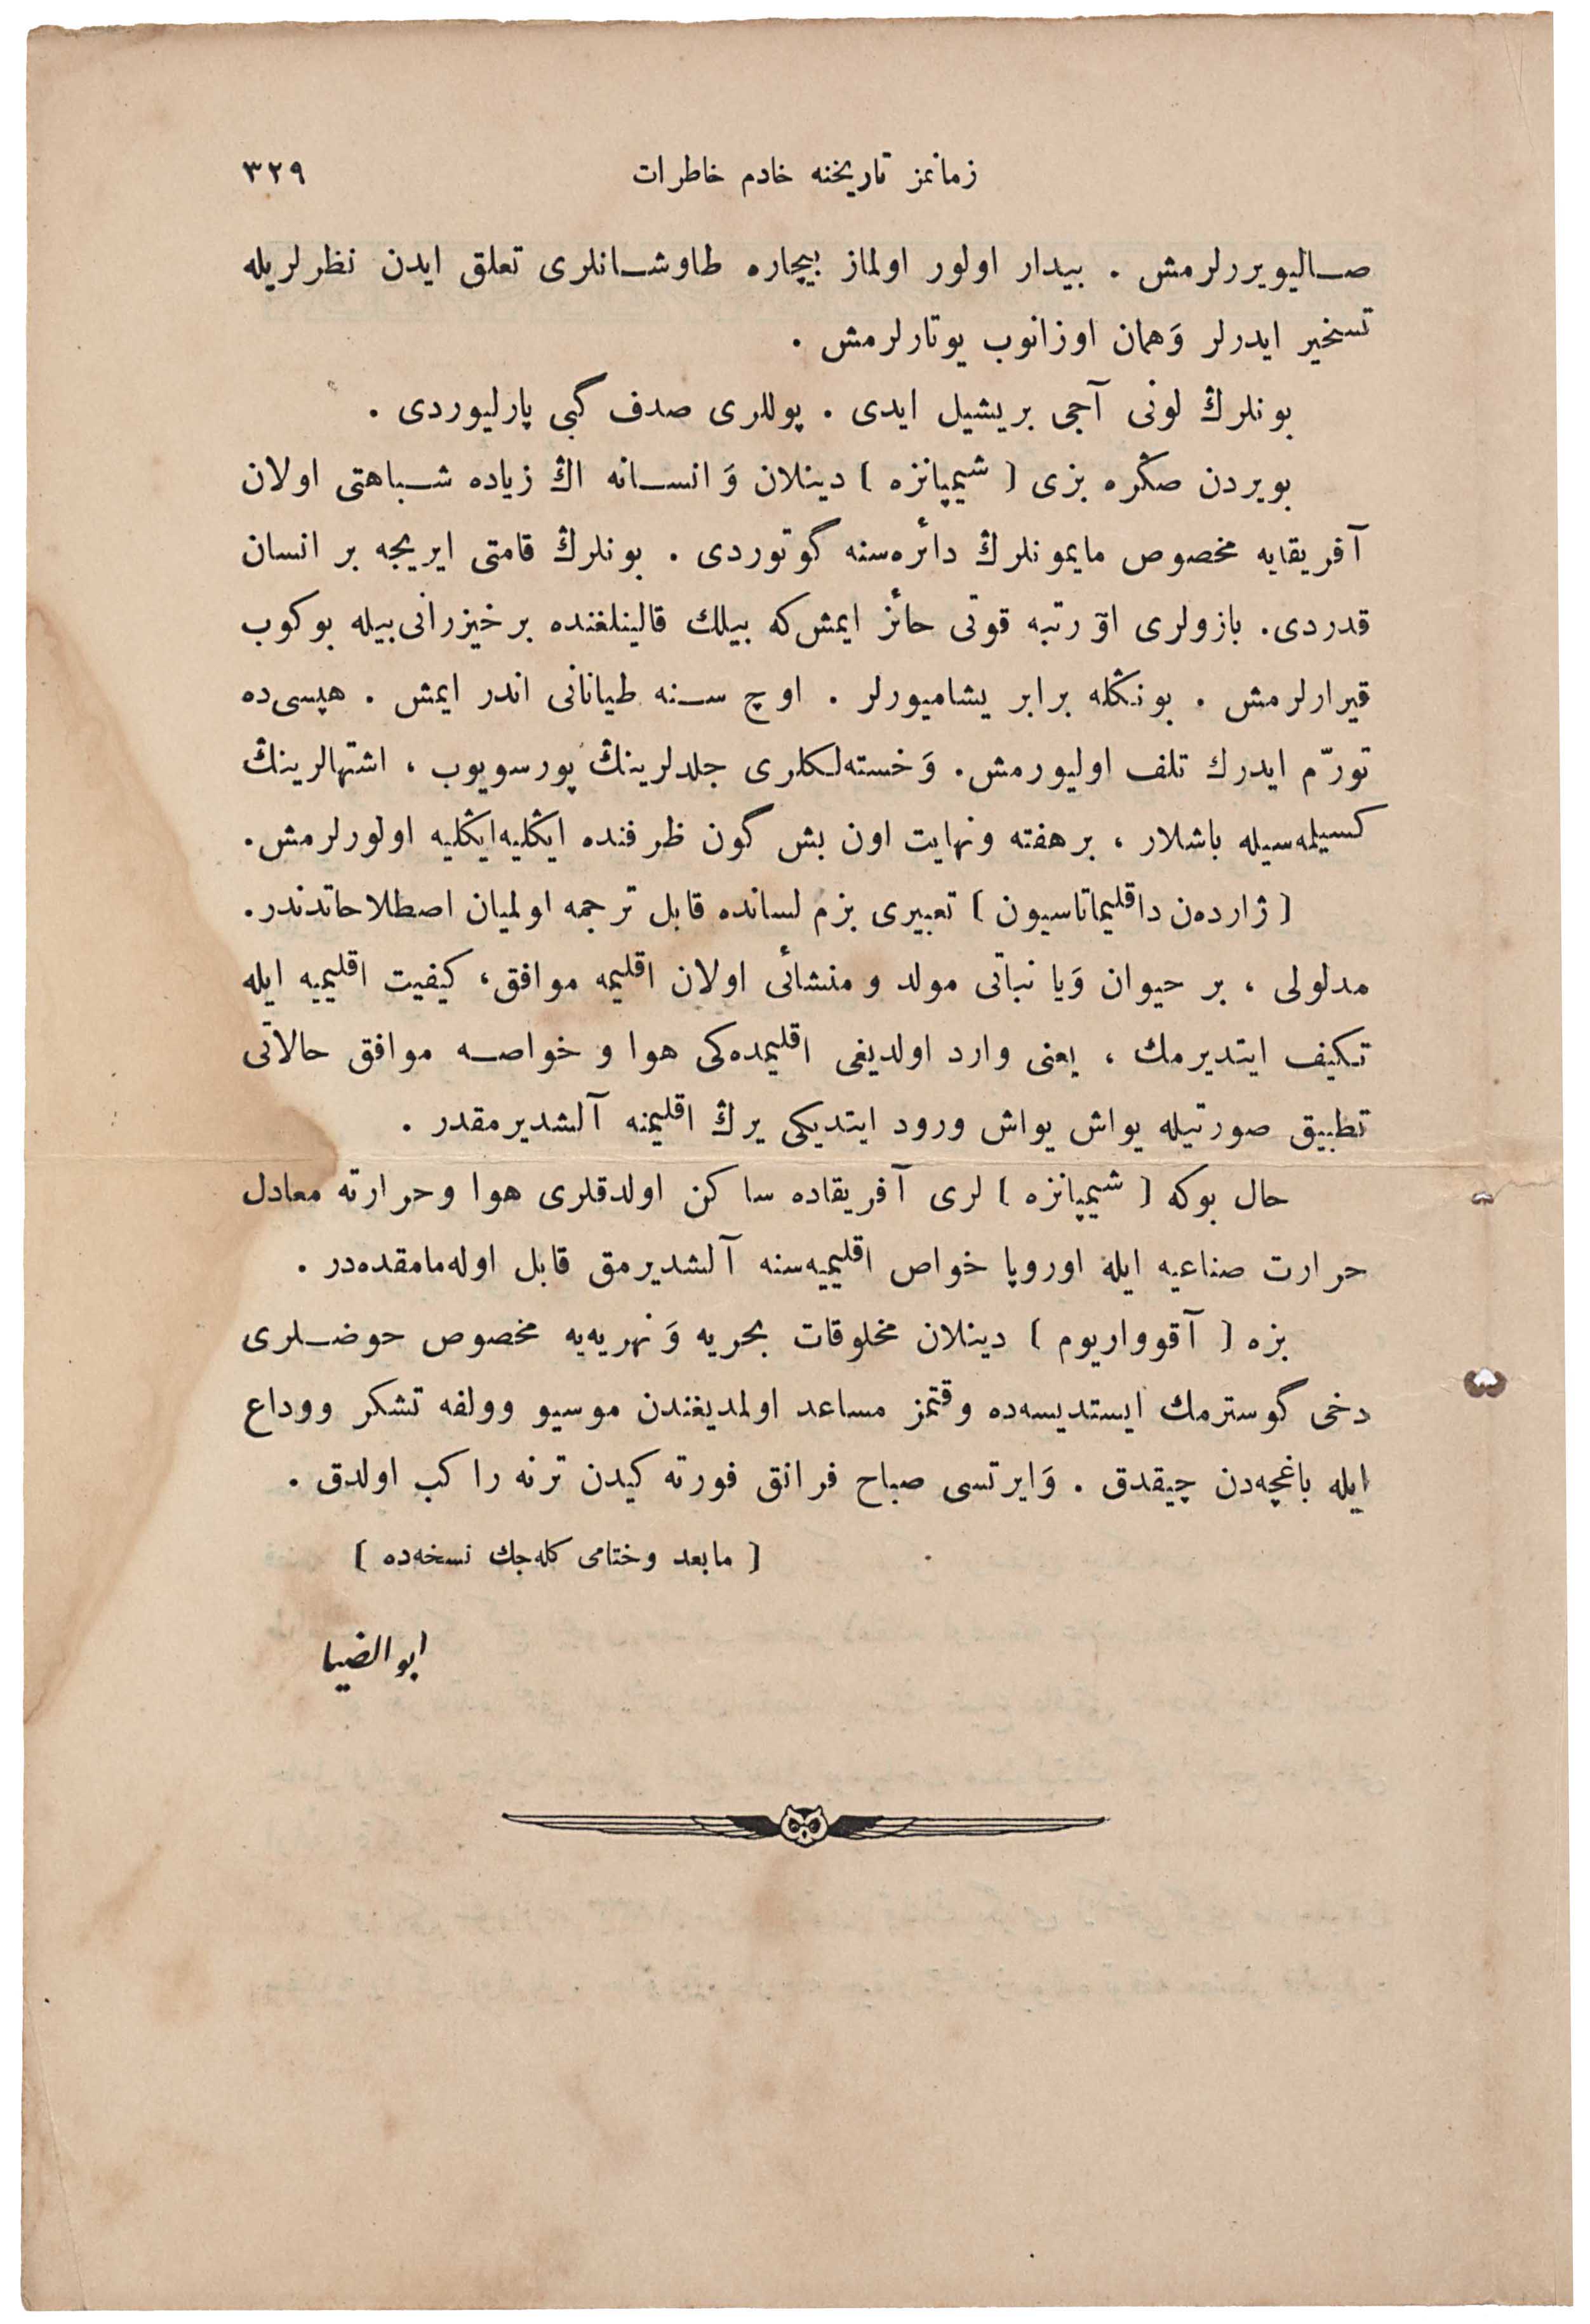 زمانمز تاریخنه خادم خاطرات ٣٢٩
صالیویررلرمش . بیدار اولور اولماز بیچاره طاوشانلری تعلق ایدن نظرلریله
تسخیر ایدرلر وَهمان اوزانوب یوتارلرمش .
بونلرڭ لونی آجی بریشیل ایدی . پوللری صدف گبی پارلیوردی .
بویردن صڭره بزی [ شیمپانزه ] دینلان وَ انسانه اڭ زیاده شباهتی اولان
آفریقایه مخصوص مایمونلرڭ دائره‌سنه گوتوردی . بونلرڭ قامتی ایریجه بر انسان
قدردی. بازولری اوٓ رتبه قوتی حائز ایمش‌که بیلك قالینلغنده برخیزرانی‌بیله بوکوب
قیرارلرمش . بونڭله برابر یشامیورلر . اوچ سنه طیانانی اندر ایمش . هپسی‌ده
تورّم ایدرك تلف اولیورمش. وَخسته‌لکلری جلدلرینڭ پورسویوب ، اشتهالرینڭ
کسیلمه‌سیله باشلار ، برهفته ونهایت اون بش گون ظرفنده ایڭلیه‌ایڭلیه اولورلرمش.
[ ژارده‌ن داقلیماتاسیون ] تعبیری بزم لسانده قابل ترجمه اولمیان اصطلاحاتدندر.
مدلولی ، بر حیوان وَیا نباتی مولد و منشائی اولان اقلیمه موافق، کیفیت اقلیمیه ایله
تکیف ایتدیرمك ، یعنی وارد اولدیغی اقلیمده‌کی هوا و خواصه موافق حالاتی
تطبیق صورتیله یواش یواش ورود ایتدیکی یرڭ اقلیمنه آلشدیرمقدر .
حال بوکه [ شیمپانزه ] لری آفریقاده ساکن اولدقلری هوا وحرارته معادل
حرارت صناعیه ایله اوروپا خواص اقلیمیه‌سنه آلشدیرمق قابل اوله‌مامقده‌در .
بزه [ آقوواریوم ] دینلان مخلوقات بحریه وَ نهریه‌یه مخصوص حوضلری
دخی گوسترمك ایستدیسه‌ده وقتمز مساعد اولمدیغندن موسیو وولفه تشکر ووداع
ایله باغچه‌دن چیقدق . وَایرتسی صباح فرانق فورته کیدن ترنه راکب اولدق .
[ مابعد وختامی کله‌جك نسخه‌ده ]
ابوالضیا